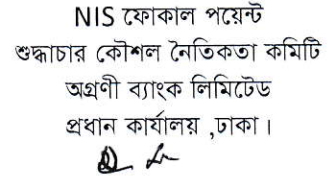 NIS ফোকাল পয়েন্ট
শুদ্ধাচার কৌশল নৈতিকতা কমিটি
অগ্রণী ব্যাংক লিমিটেড
প্রধান কার্যালয় ,ঢাকা।